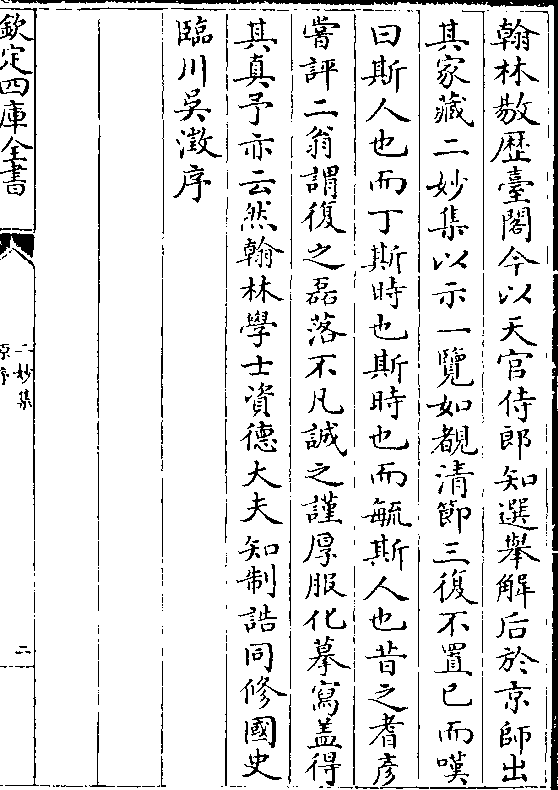 翰林敭歷臺閣今以天官侍郎知選舉解后於京師出
其家藏二妙集以示一覽如覩清節三復不置已而嘆
曰斯人也而丁斯時也斯時也而毓斯人也昔之耆彥
嘗評二翁謂復之磊落不凡誠之謹厚服化摹寫盖得
其真予亦云然翰林學士資德大夫知制誥同修國史
臨川吳澂序
欽定四庫全書
二妙集
原序
二